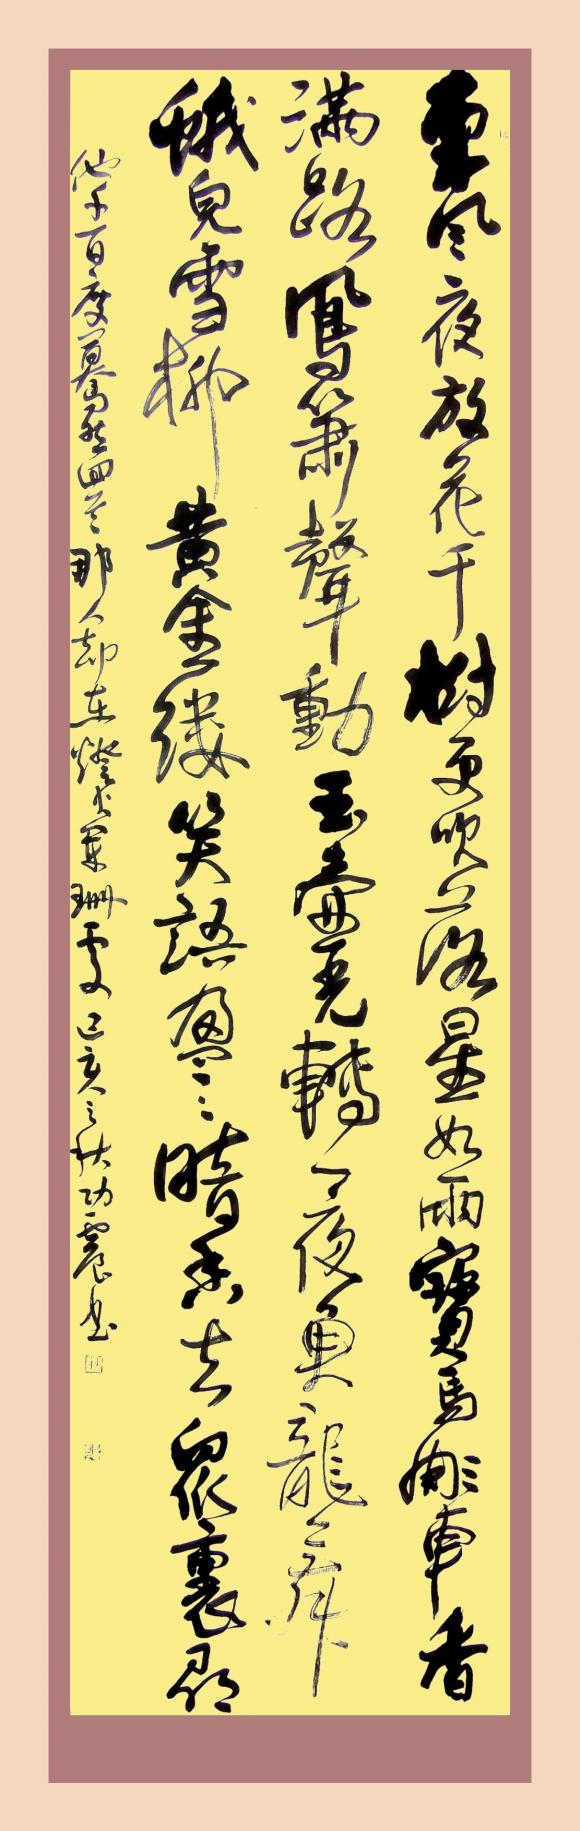 東风夜放花千樹更吹落星如雨寶馬雕車香
满路鳳簫聲動玉壺光轉一夜魚龍舞
蛾兒雪柳黄金缕笑語盈〻暗香去衆裏尋
他千百度驀然回首那人却在燈火闌珊處己亥之秋功震书